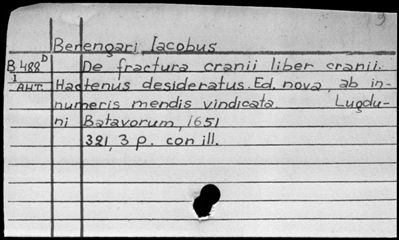 Berengari, Iacobus
B.488D De fractura cranii liber cranii.
1 АНТ. Hactenus desideratus. Ed. nova, ab in-
numeris mendis vindicata. Lugdu-
ni Batavorum, 1651
321, 3 p. con ill.